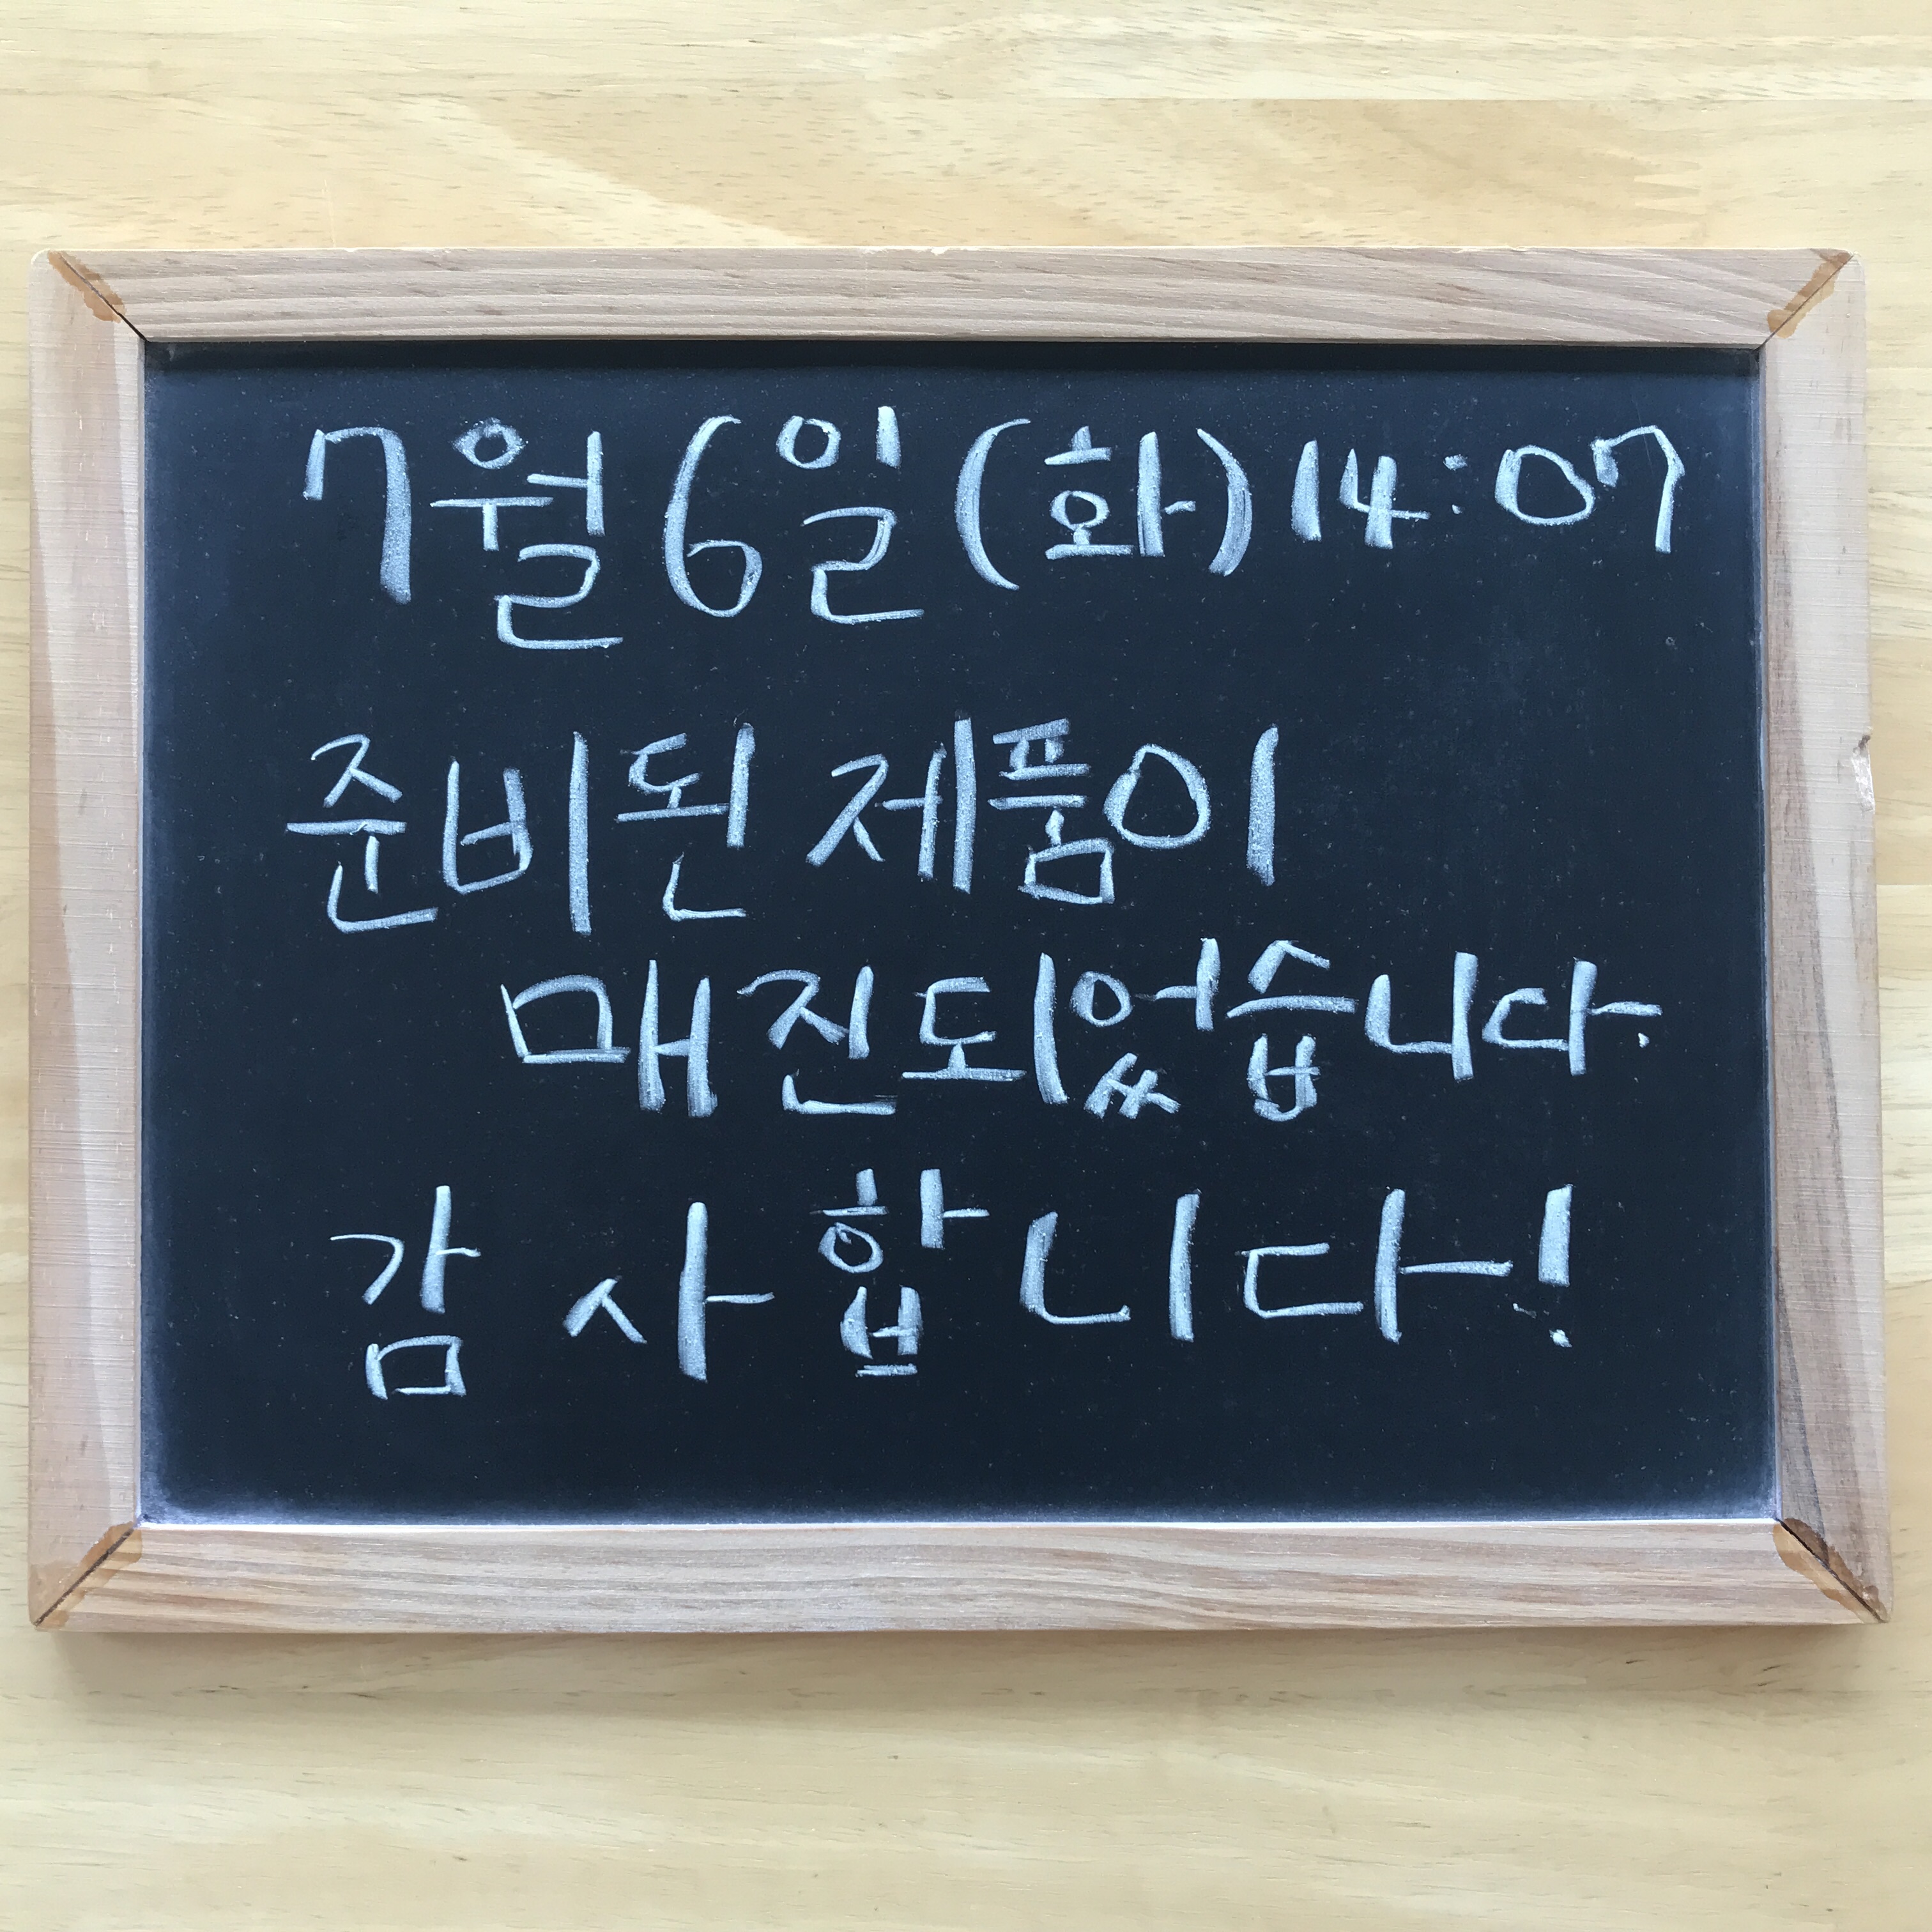 7월 6일 (화) 14:07
준비된 제품이
매진되었습니다.
감사합니다!